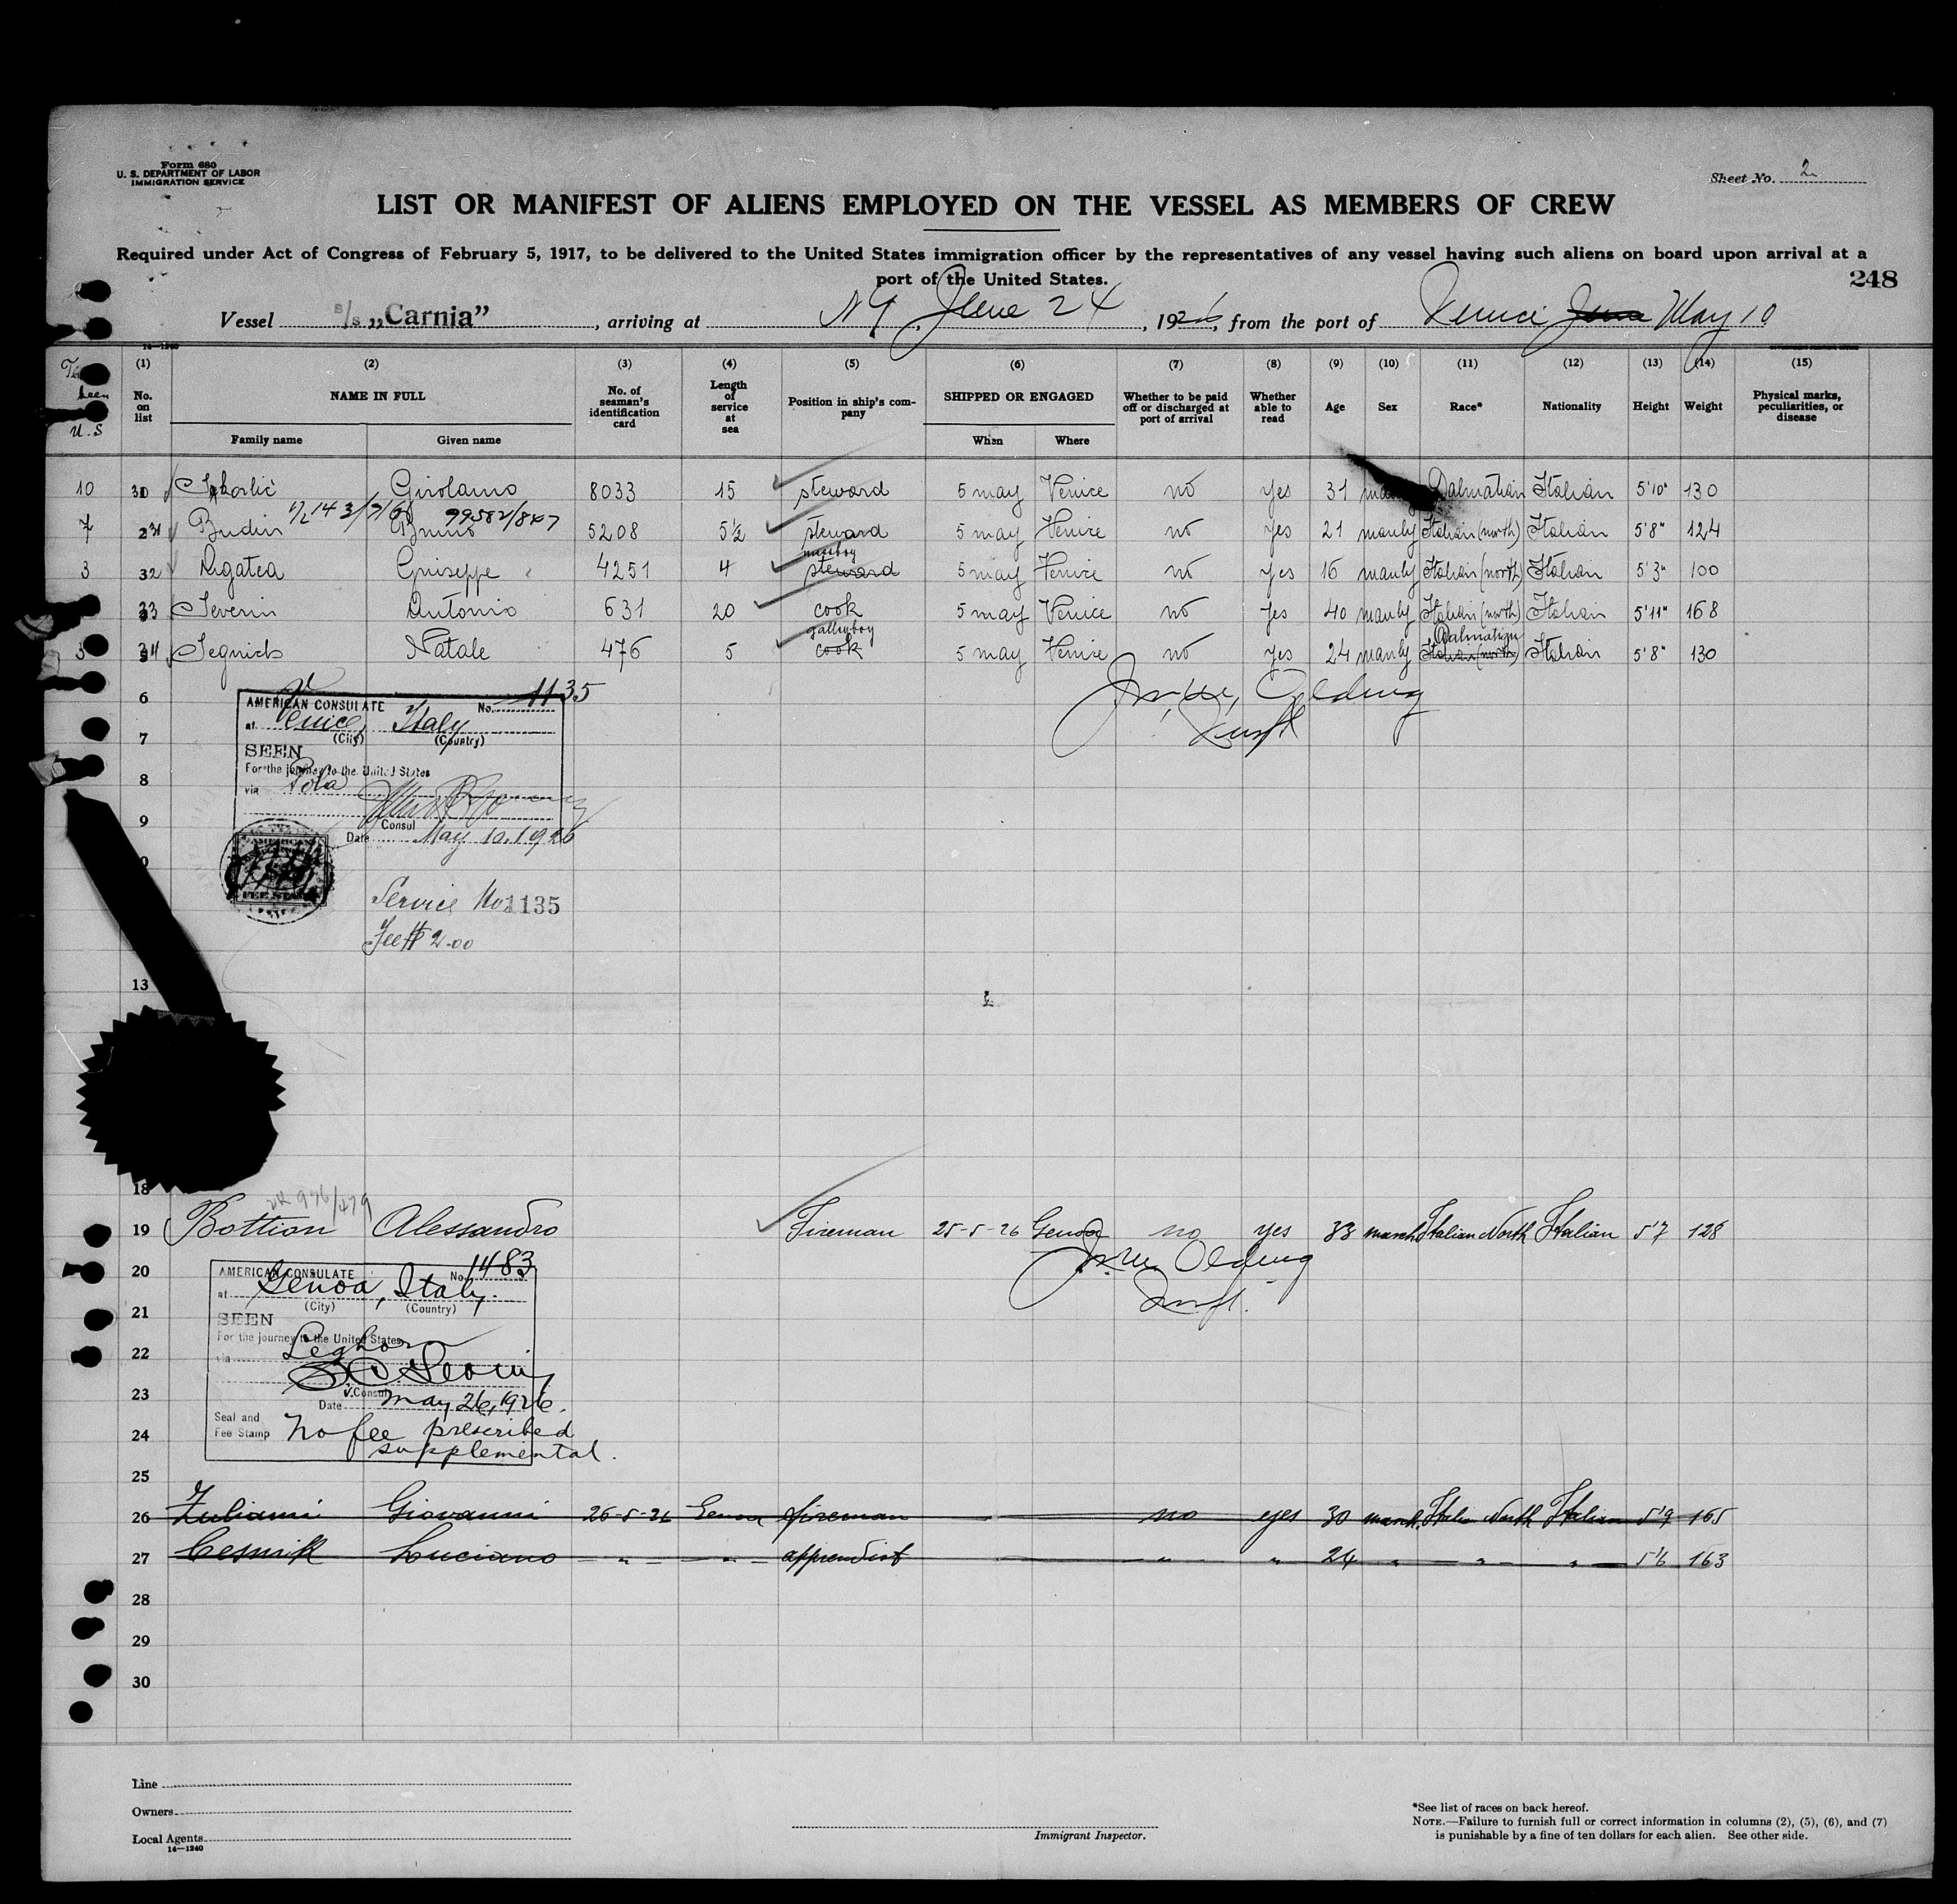 Form 680
U. S. DEPARTMENT OF LABOR
IMMIGRATION SERVICE
Sheet No. 2
LIST OR MANIFEST OF ALIENS EMPLOYED ON THE VESSEL AS MEMBERS OF CREW
Required under Act of Congress of February 5, 1917, to be delivered to the United States immigration officer by the representatives of any vessel having such aliens on board upon arrival at a
port of the United States.
248
Vessel s/s „Carnia”, arriving at NY, June 24, 1926, from the port of Venice June May 10
14—1240
been U.S
(1) (2) (3) (4) (5) (6) (7) (8) (9) (10) (11) (12) (13) (14) (15)
No. on list
NAME IN FULL
Family name Given name
No. of seaman's identification card
Length of service at sea
Position in ship's company
SHIPPED OR ENGAGED
When Where
Whether to be paid off or discharged at port of arrival
Whether able to read
Age Sex Race* Nationality Height Weight
Physical marks, peculiarities, or disease
10 30 Girolamo 8033 15 steward 5 may Venice no yes 31 Dalmatian Italian 5'10" 130
99582/847
7 31 Budin Bruno 5208 5½ steward 5 may Venice no yes 21 manly Italian (north) Italian 5'8" 124
messboy
3 32 Agatea Giuseppe 4251 4 steward 5 may Venice no yes 16 manly Italian (north) Italian 5'3" 100
33 Severin Antonio 631 20 cook 5 may Venice no yes 40 manly Italian (north) Italian 5'11" 168
galleyboy Dalmatian
34 Segnich Natale 476 5 cook 5 may Venice no yes 24 manly Italian (north) Italian 5'8" 130
6
AMERICAN CONSULATE No. 1135
at Venice, Italy
(City) (Country)
7
SEEN
For the journey to the United States
8
via Pola
9
Consul
Date May 10, 1926
Service No. 1135
Fee $ 2.00
13
18
19 Bottion Alessandro Fireman 25-5-26 Genoa no yes 33 Italian North Italian 5'7 128
20
AMERICAN CONSULATE No. 1483
at Genoa, Italy.
(City) (Country)
21
SEEN
For the journey to the United States
22
via Leghorn
23
V. Consul
Date May 26, 1926.
Seal and
Fee Stamp
24
No fee prescribed
supplemental.
25
26 Zuliani Giovanni 26-5-26 Genoa fireman no yes 30 Italian North Italian 5'9 165
27 Cesnik Luciano " " apprendist " " 24 " " " 5'6 163
28
29
30
Line
Owners
Local Agents
14—1240
Immigrant Inspector.
*See list of races on back hereof.
NOTE.—Failure to furnish full or correct information in columns (2), (5), (6), and (7)
is punishable by a fine of ten dollars for each alien. See other side.